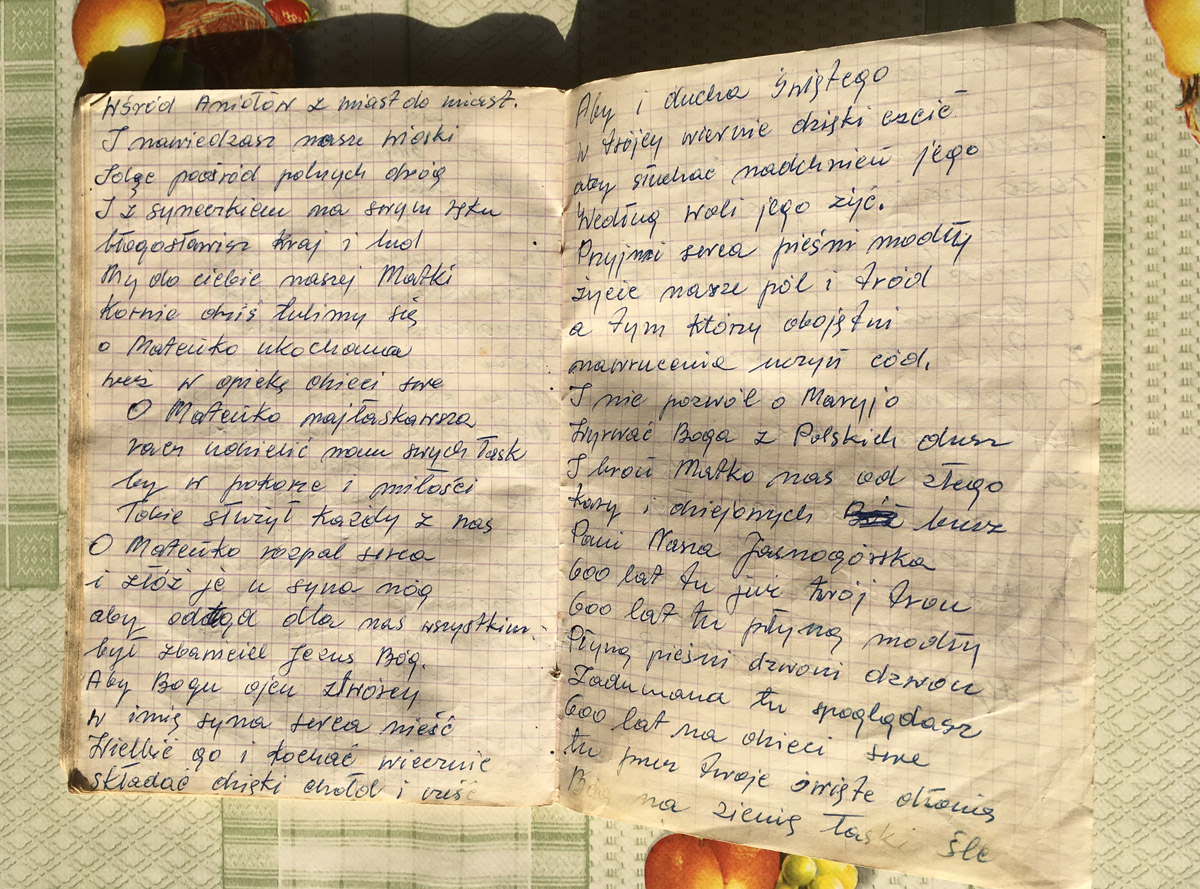 Wśród Aniołów z miast do miast.
I nawiedzasz nasze wioski
Idąc pośród polnych dróg
I z syneczkiem na swym ręku
błogosławisz kraj i lud
My do ciebie naszej Matki
Kornie dziś tulimy się
o Mateńko ukochana
weź w opiekę dzieci swe
O Mateńko najłaskawsza
racz udzielić nam swych łask
by w pokorze i miłości
Tobie służył każdy z nas
O Mateńko rozpal serca
i złóż je u syna nóg
aby odtąd dla nas wszystkim
był zbawiciel Jezus Bóg.
Aby Bogu ojcu stwórcy
w imię syna serca nieść
Wielbić go i kochać wiecznie
składać dzięki chołd i cześć
Aby i ducha świętego
w trójcy wiernie dzięki czcić
aby słuchać nadchnień jego
Według woli jego żyć.
Przyjmi serca pieśni modły
życie nasze pól i tród
a tym którzy obojętni
nawrucenia uczyń cód.
I nie pozwól o Maryjo
Wyrwać Boga z Polskich dusz
I broń Matko nas od złego
kary i dziejowych burz
Pani Nasza Jasnogórska
600 lat tu już twój tron
600 lat tu płyną modły
Płyną pieśni dzwoni dzwon
Zadumana tu spoglądasz
600 lat na dzieci swe
tu przez twoje święte dłonie
Bóg na ziemię łaski śle